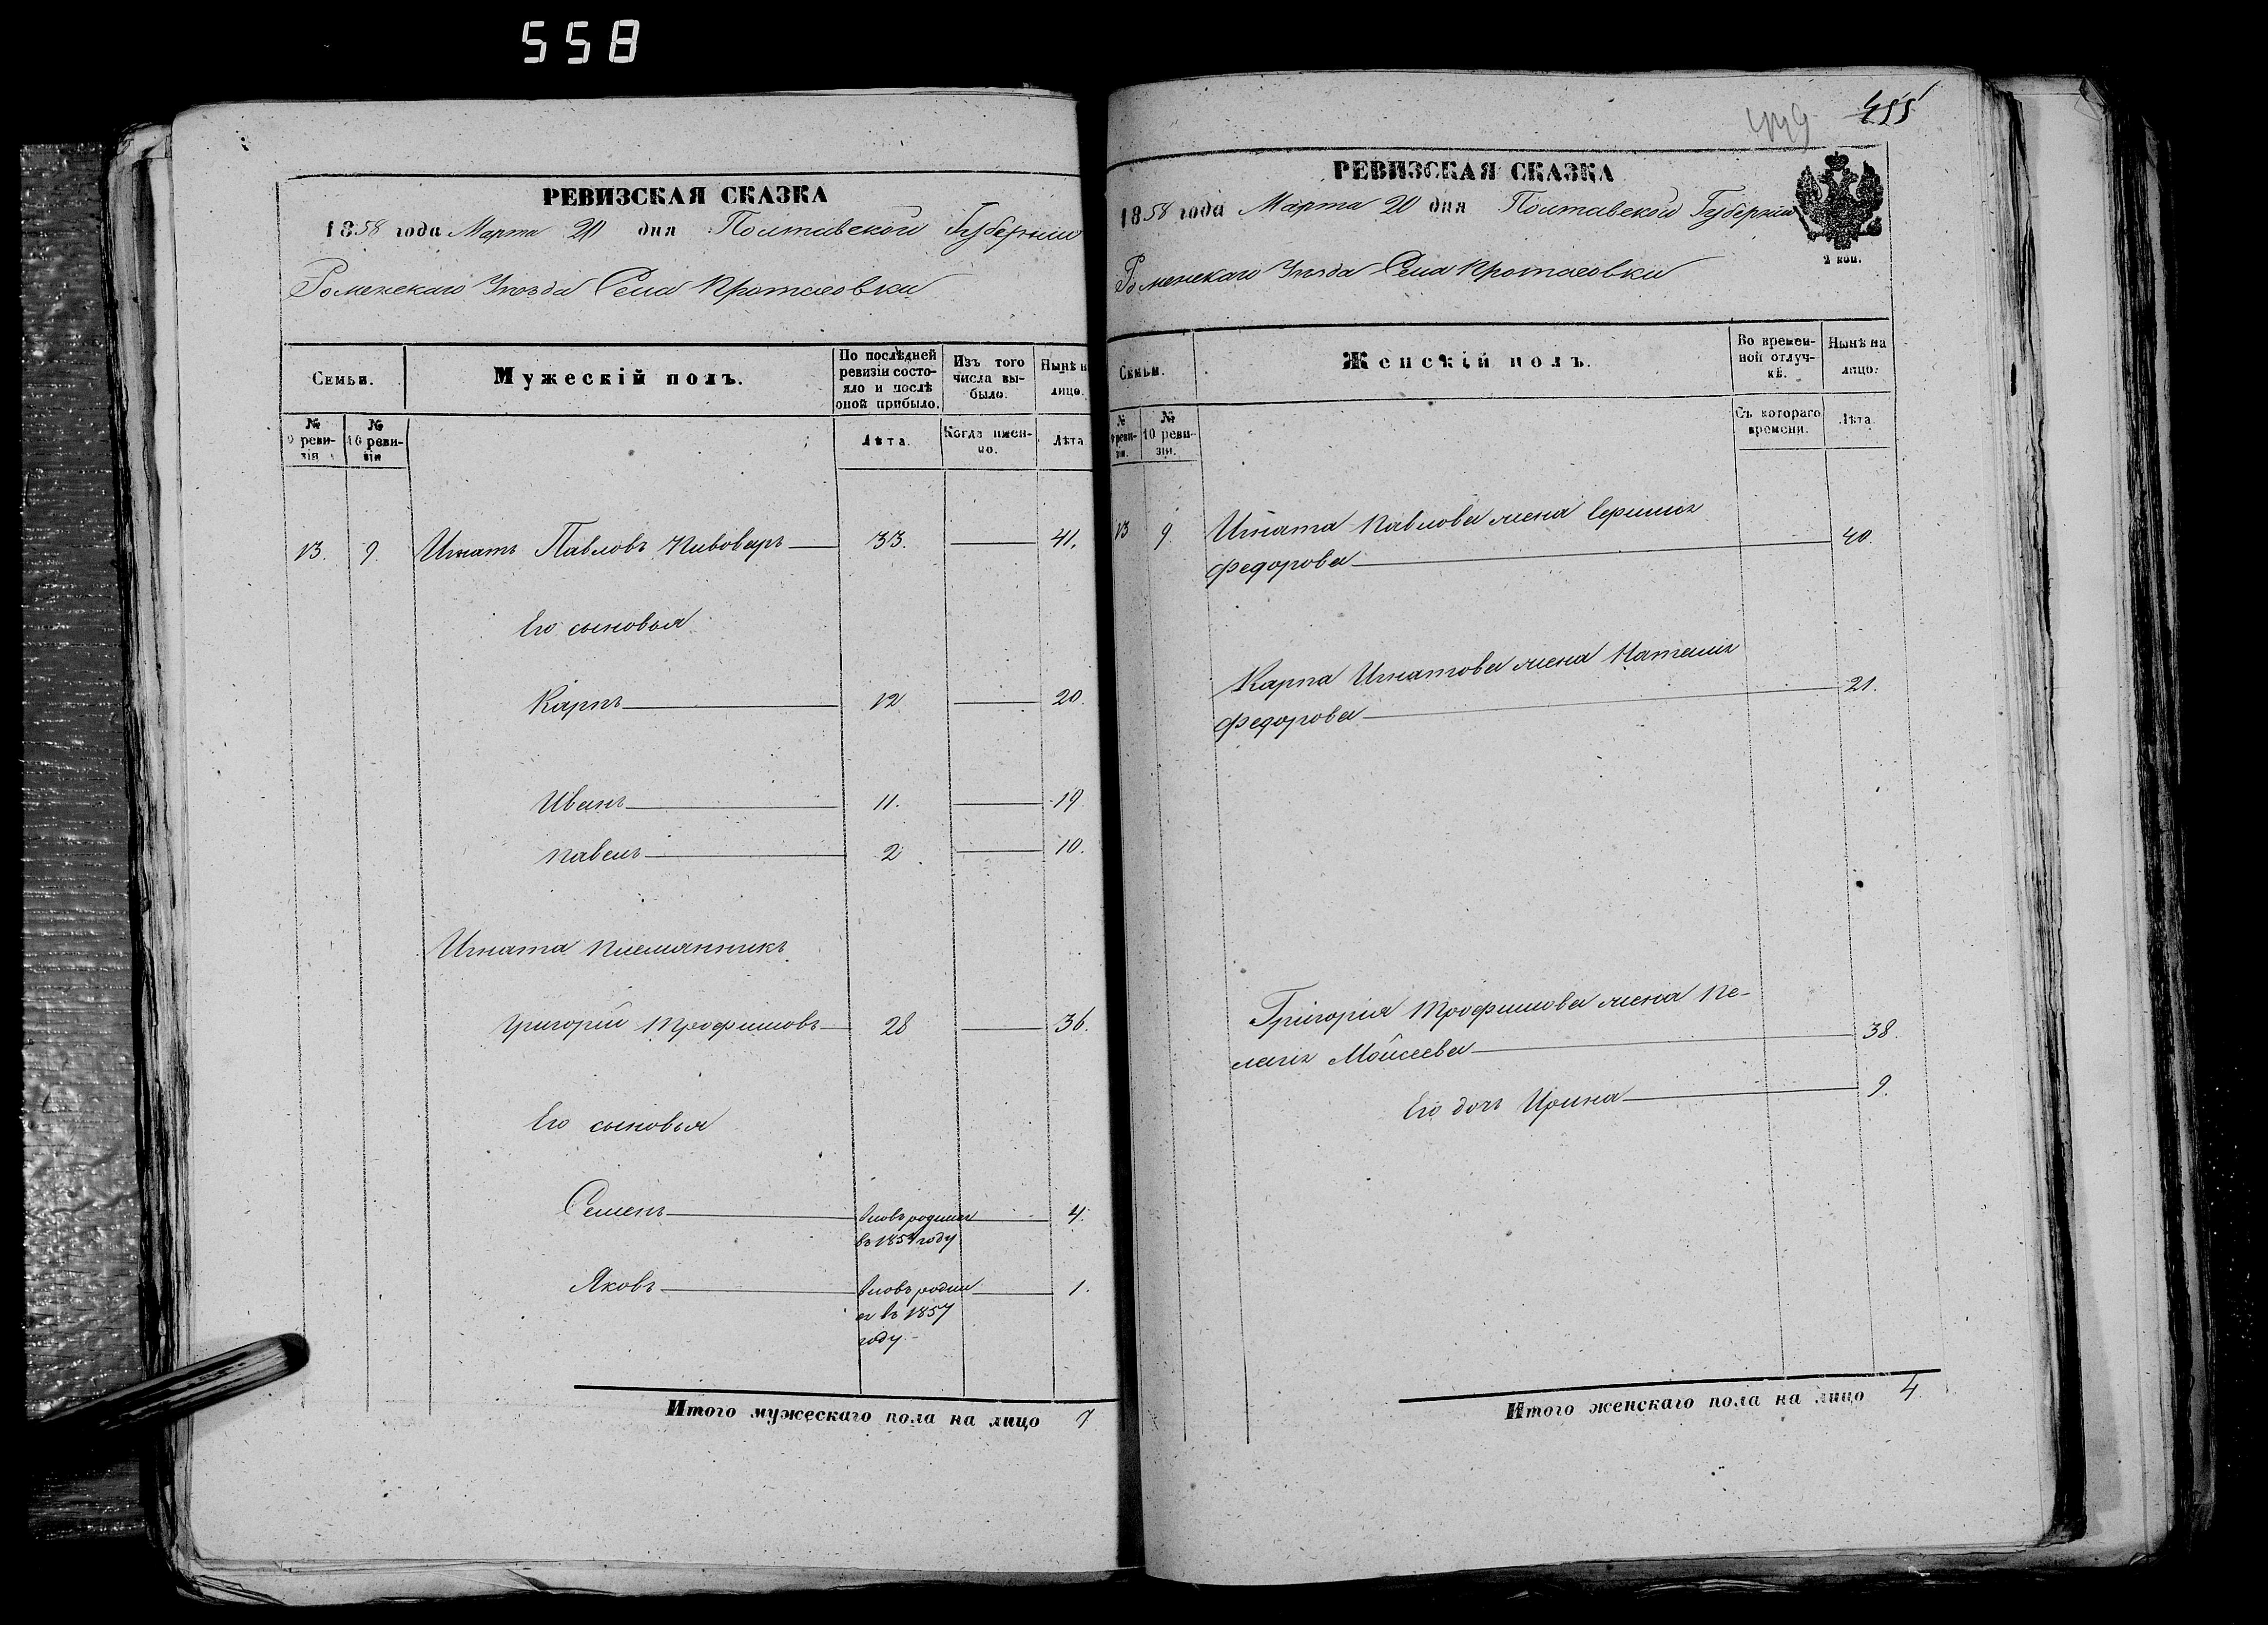 558
РЕВИЗСКАЯ СКАЗКА
1858 года Марта 20 дня Полтавской Губернии
Роменскаго Уезда Села Протасовки
Семьи.
Мужескій полъ.
По послѣдней ревизіи состояло и послѣ оной прибыло.
Изъ того числа выбыло.
Нынѣ н
лицо.
№ 9 ревизія
№ 10 ревизіи
Лѣта.
Когда именно.
Лѣта
13. 9. Игнатъ Павловъ Пивоваръ 33. 41.
Его сыновья
Карпъ 12 20.
Иванъ 11. 19
Павелъ 2 10.
Игната племянникъ
Григорій Трофимовъ 28 36.
Его сыновья
Семенъ 4.
въ 1854 году
Яковъ 1.
ся въ 1857
году
Итого мужескаго пола на лицо 7
449 455
РЕВИЗСКАЯ СКАЗКА
1858 года Марта 20 дня Полтавской Губернии
2 коп.
Роменскаго Уезда Села Протасовки
Семьи.
Женскій полъ.
Во временной отлучкѣ.
Нынѣ на лицо.
№ 9 ревизіи.
№ 10 ревизіи.
Съ котораго времени.
Лѣта.
13 9 Игната Павлова жена
Федорова 40.
Карпа Игнатова жена Наталия
Федорова 21.
Григория Трофимова жена Пе-
лагия Мойсеева 38.
Его дочь Ирина 9.
Итого женскаго пола на лицо 4